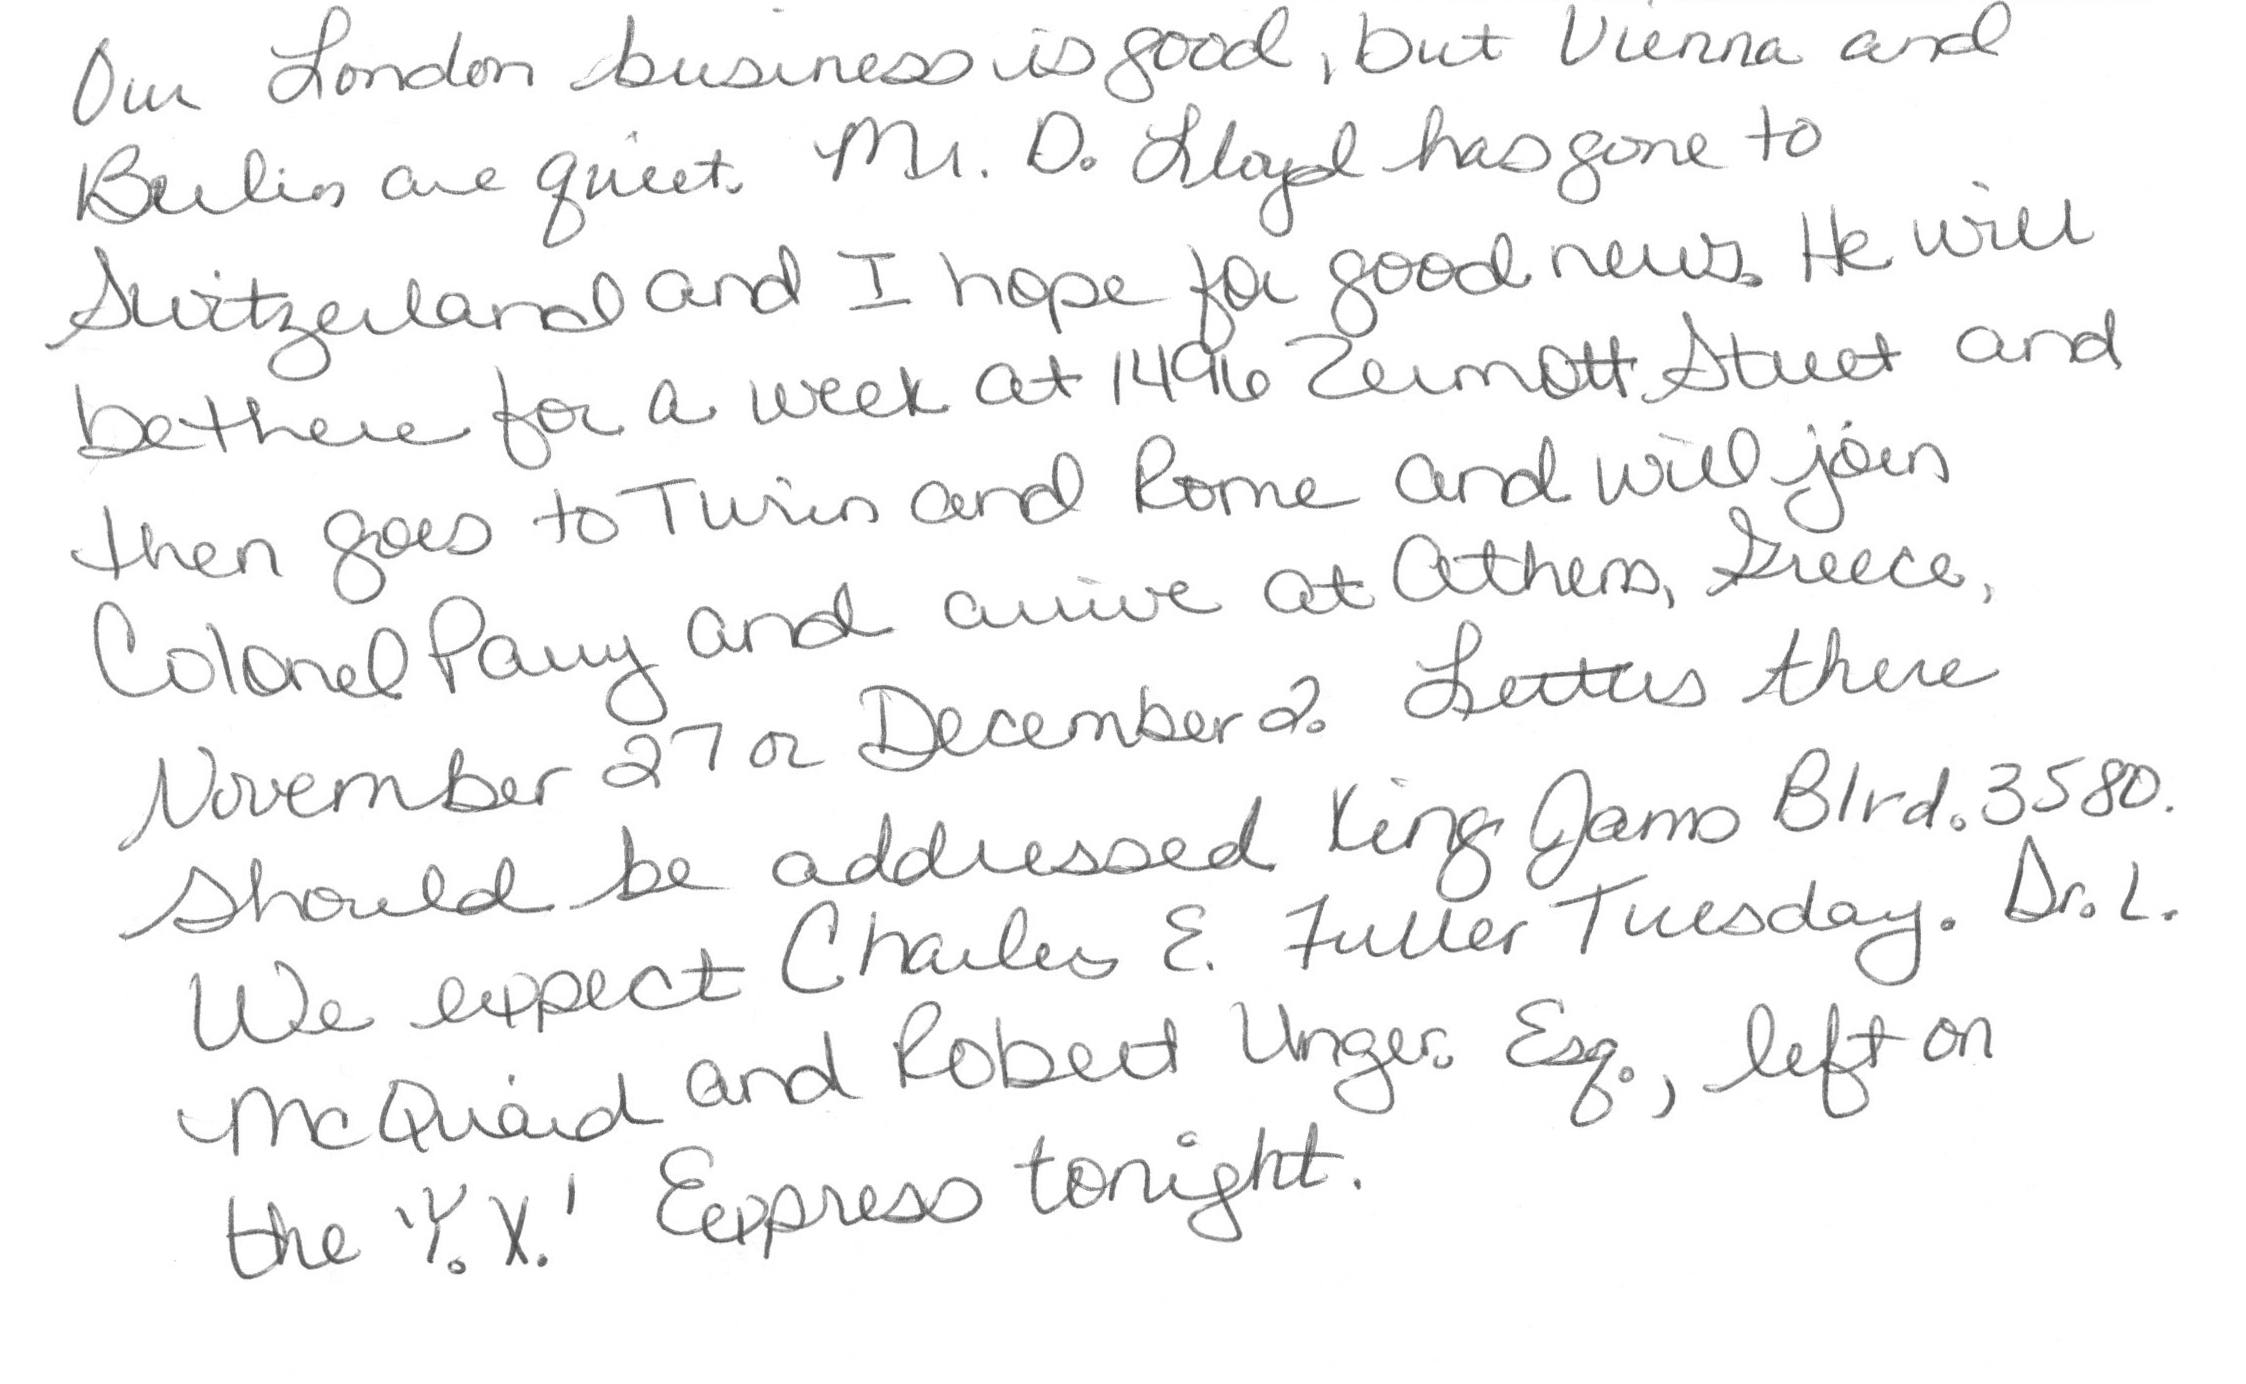 Our London business is good, but Vienna and
Berlin are quiet. Mr. D. Lloyd has gone to
Switzerland and I hope for good news. He will
be there for a week at 1496 Zermott Street and
then goes to Turin and Rome and will join
Colonel Parry and arrive at Athens, Greece,
November 27 or December 2. Letters there
should be addressed King James Blvd. 3580.
We expect Charles E. Fuller Tuesday. Dr. L.
McQuaid and Robert Unger. Esq., left on
the 'Y.X.' Express tonight.